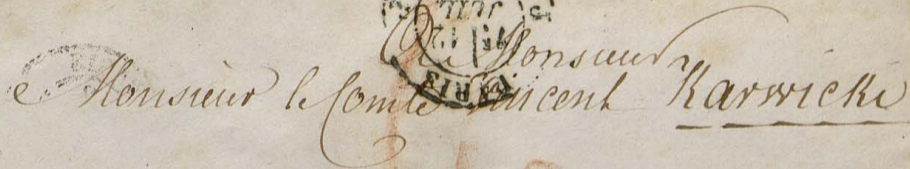 A Monsieur
Monsieur le Comte Vincent Karwicki
PARIS